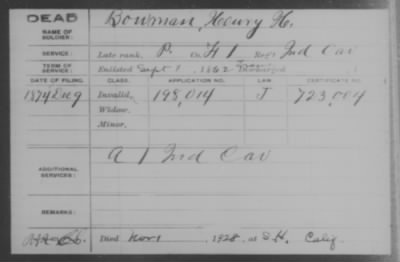 DEAD
Bowman, Henry H.
NAME OF SOLDIER:
SERVICE: Late rank, P. Co. H 1 Reg't Ind Cav
TERM OF SERVICE: Enlisted Sept 1, 1862 Discharged , 1
DATE OF FILING. CLASS. APPLICATION NO. LAW. CERTIFICATE NO.
1874 Aug Invalid, 198,014 J 723,004
Widow,
Minor,
ADDITIONAL SERVICES: A 1 Ind Cav
REMARKS:
Died Nov 1, 1928, at S.H. Calif.